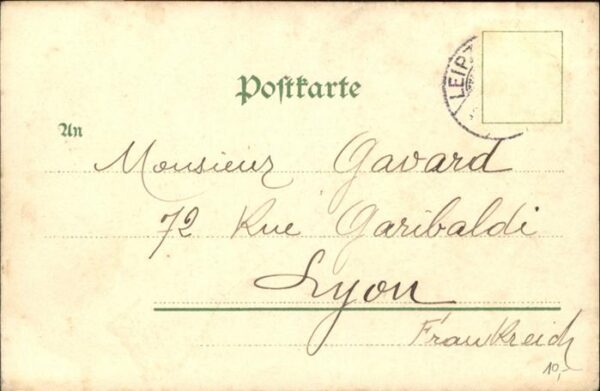 Postkarte
LEIP
An
Monsieur Gavard
72 Rue Garibaldi
Lyon
Frankreich
10,-